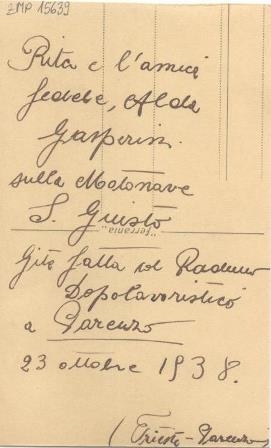 ZMP 15639
Rita e l'amica
fedele, Alda
Gasperini
sulla Motonave
S. Giusto
"ferrania"
Gita fatta col Raduno
Dopolavoristico
a Parenzo
23 ottobre 1938.
(Trieste-Parenzo)